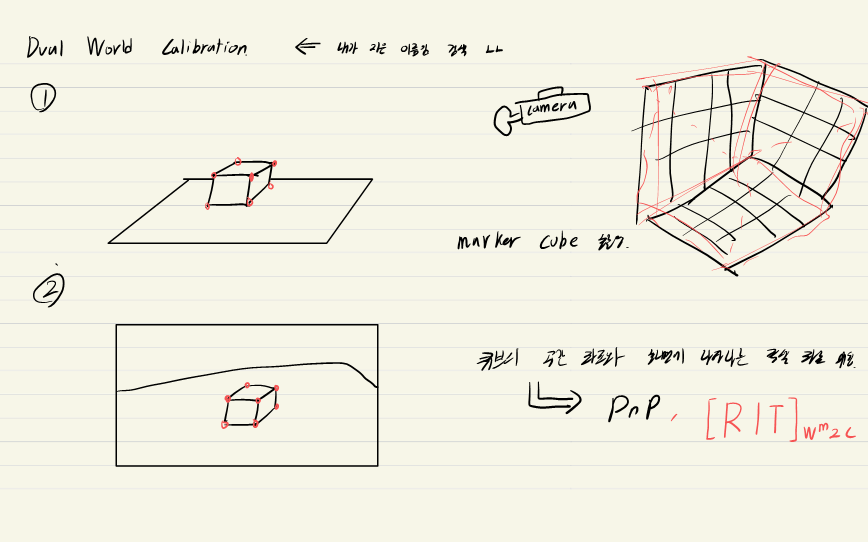 Dual World Calibration. ← 내가 지은 이름임 검색 ㄴㄴ
①
camera
marker cube 촬영.
②
큐브의 공간 좌표와 화면에 나타나는 픽셀 좌표 이용.
PnP, [R|T]wm2c